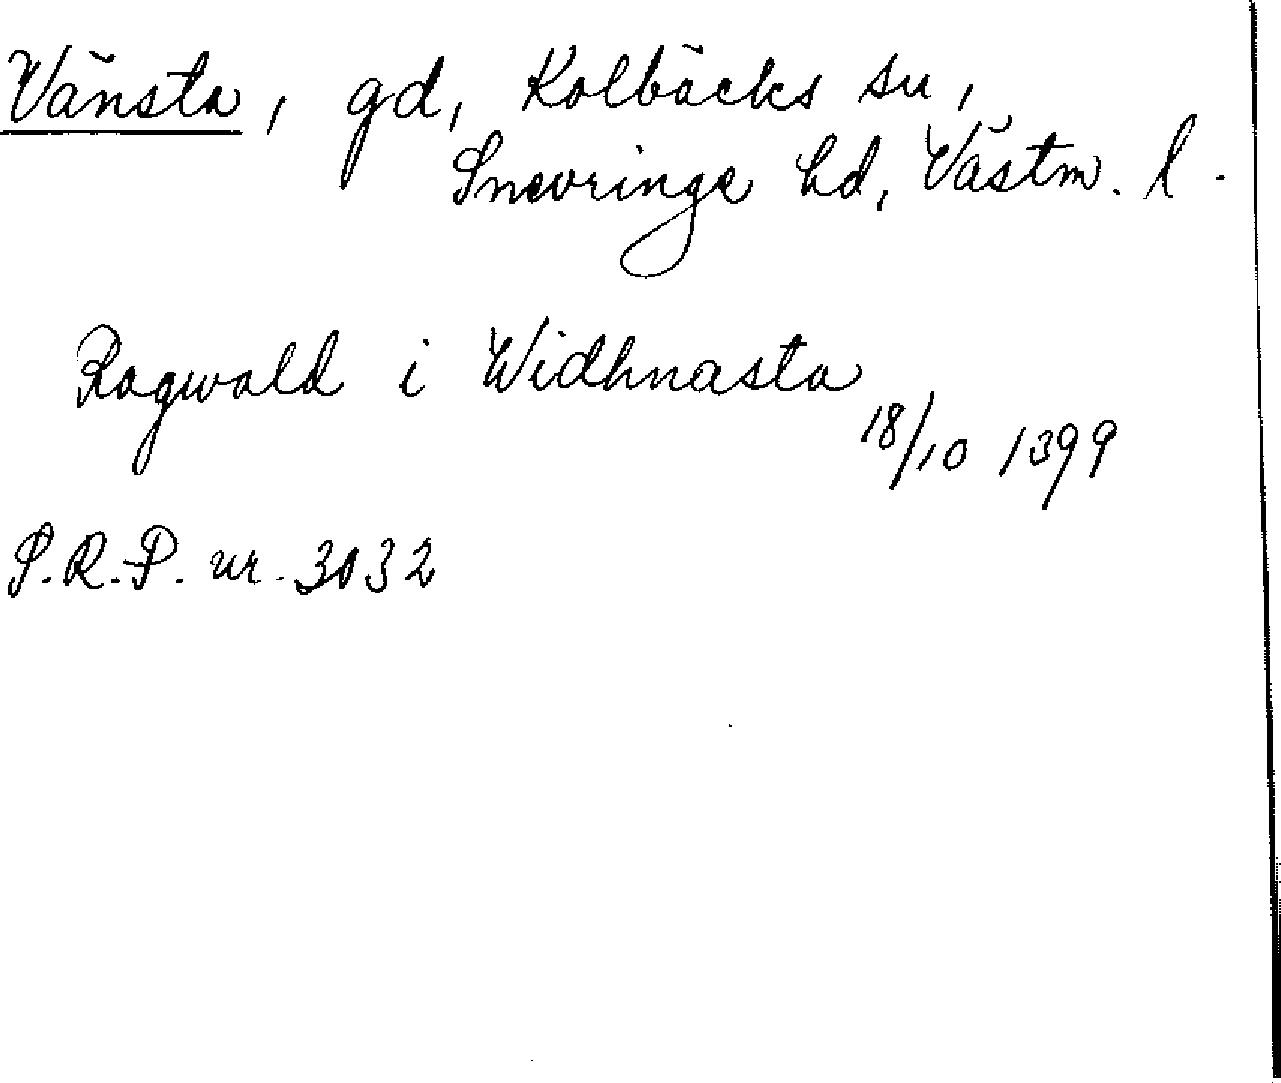 Vänsta, gd, Kolbäcks sn,
Snevringe hd, Västm. l.
Ragwald i Widhnasta
18/10 1399
S.R.P. nr. 3032